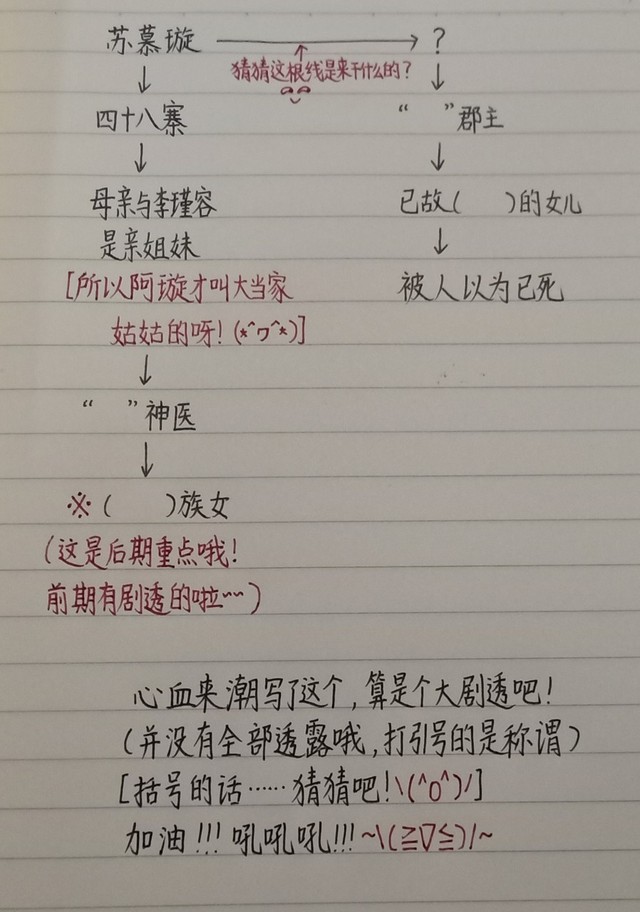 苏慕璇 → ？
猜猜这根线是来干什么的？
四十八寨 “ ”郡主
母亲与李瑾容 已故( )的女儿
是亲姐妹
[所以阿璇才叫大当家 被人以为已死
姑姑的呀！(*^ワ^*)]
“ ”神医
※( )族女
(这是后期重点哦！
前期有剧透的啦~~)
心血来潮写了这个，算是个大剧透吧！
(并没有全部透露哦，打引号的是称谓)
[括号的话……猜猜吧！\(^o^)/]
加油!!! 吼吼吼!!! ~\(≧▽≦)/~